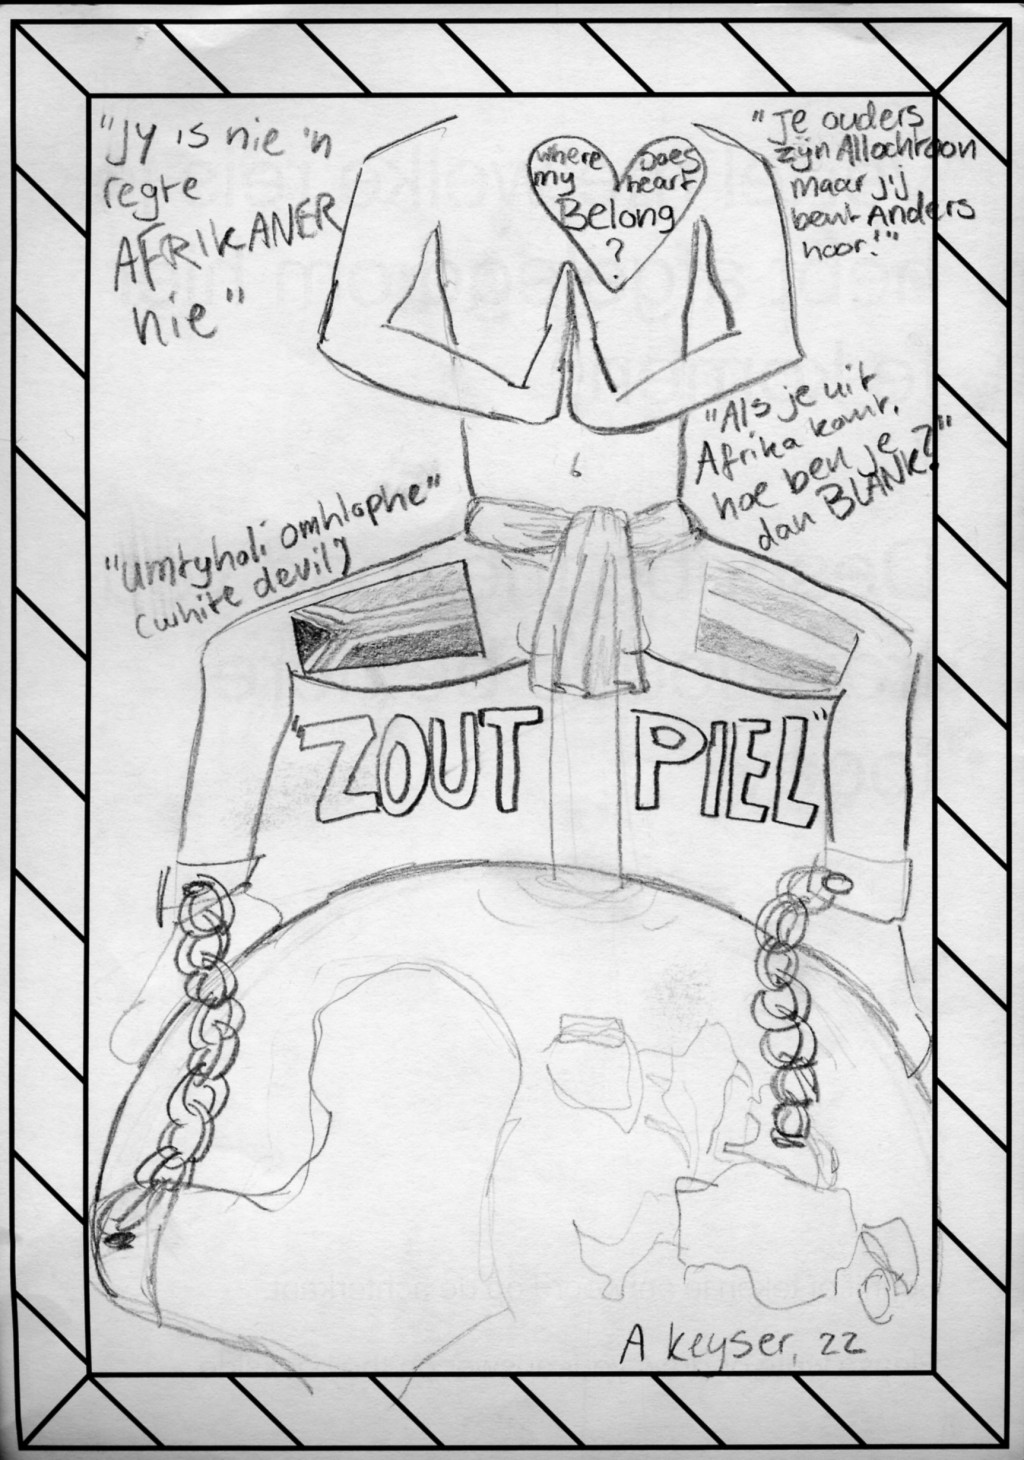 "Jy is nie 'n
regte
AFRIKANER
nie"
where Does
my heart
Belong
?
"Je ouders
zijn Allochtoon
maar jij
bent Anders
hoor!"
"Als je uit
Afrika komt,
hoe ben je
dan BLANK?"
"umtyholi omhlophe"
(white devil)
"ZOUT PIEL"
A Keyser, 22